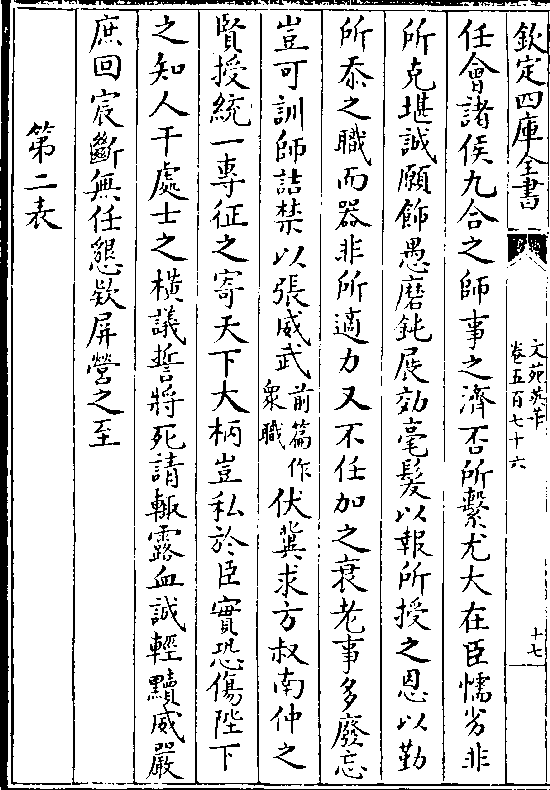 欽定四庫全書
文苑英華
卷五百七十六
十七
任會諸侯九合之師事之濟否所繫尤大在臣懦劣非
所克堪誠願飾愚磨鈍展効毫髮以報所授之恩以勤
所忝之職而器非所適力又不任加之衰老事多廢忘
豈可訓師詰禁以張威武前篇作衆職伏冀求方叔南仲之
賢授統一專征之寄天下大柄豈私於臣實恐傷陛下
之知人干處士之橫議誓將死請輙露血誠輕黷威嚴
庶回宸斷無任懇欵屏營之至
第二表